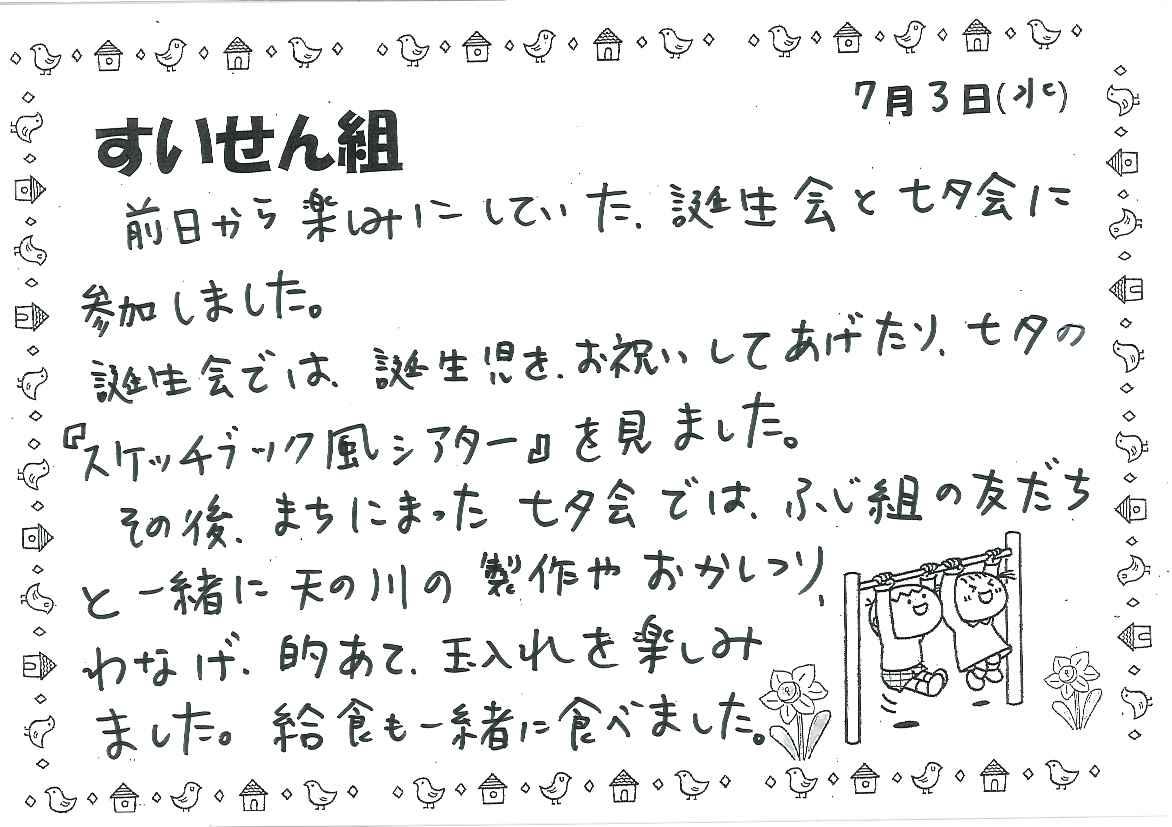 7月3日(水)
すいせん組
前日から楽しみにしていた、誕生会と七夕会に
参加しました。
誕生会では、誕生児を、お祝いしてあげたり、七夕の
『スケッチブック風シアター』を見ました。
その後、まちにまった七夕会では、ふじ組の友だち
と一緒に天の川の製作やおかしつり、
わなげ、的あて、玉入れを楽しみ
ました。給食も一緒に食べました。